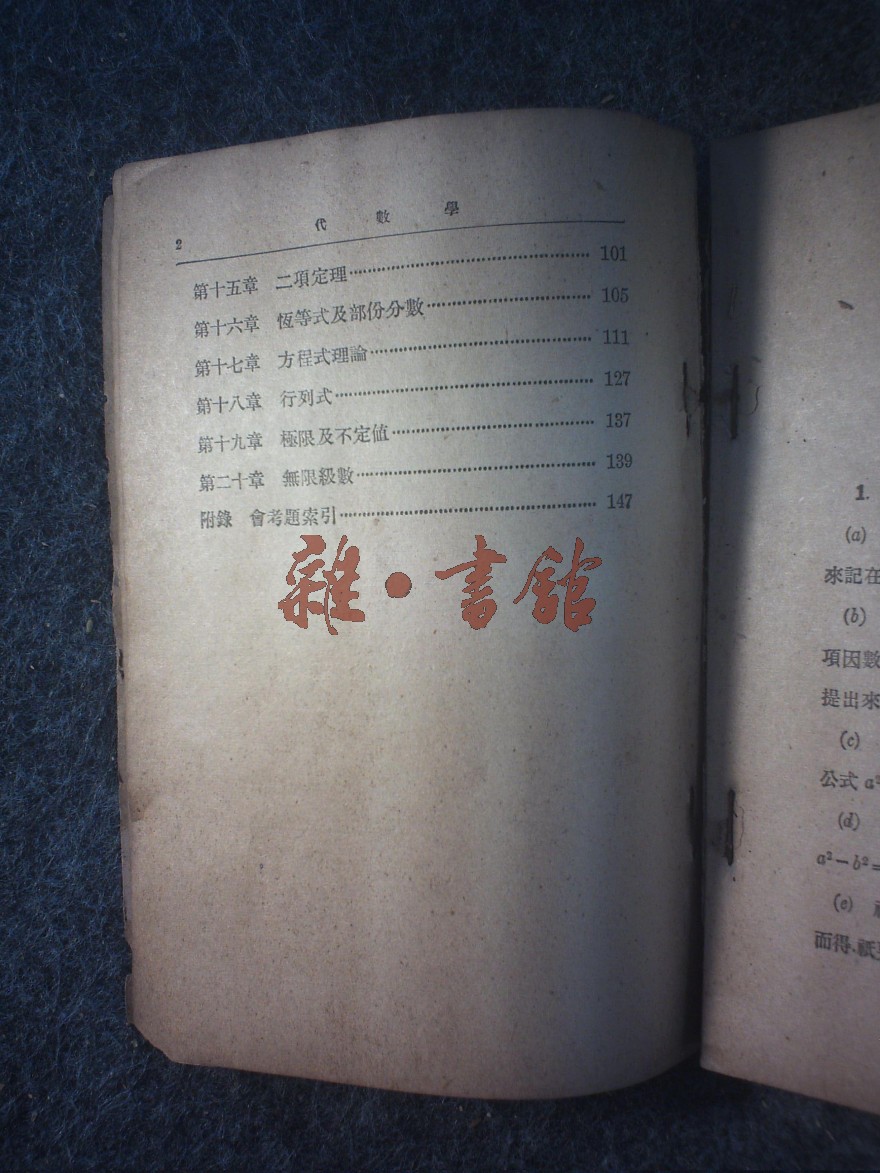 2 代數學
第十五章 二項定理 101
第十六章 恆等式及部份分數 105
第十七章 方程式理論 111
第十八章 行列式 127
第十九章 極限及不定値 137
第二十章 無限級數 139
附錄 會考題索引 147
雜·書館
1.
(a)
來記在
(b)
項因數
提出來
(c)
公式 a²
(d)
a²-b²=
(e)
而得,祇